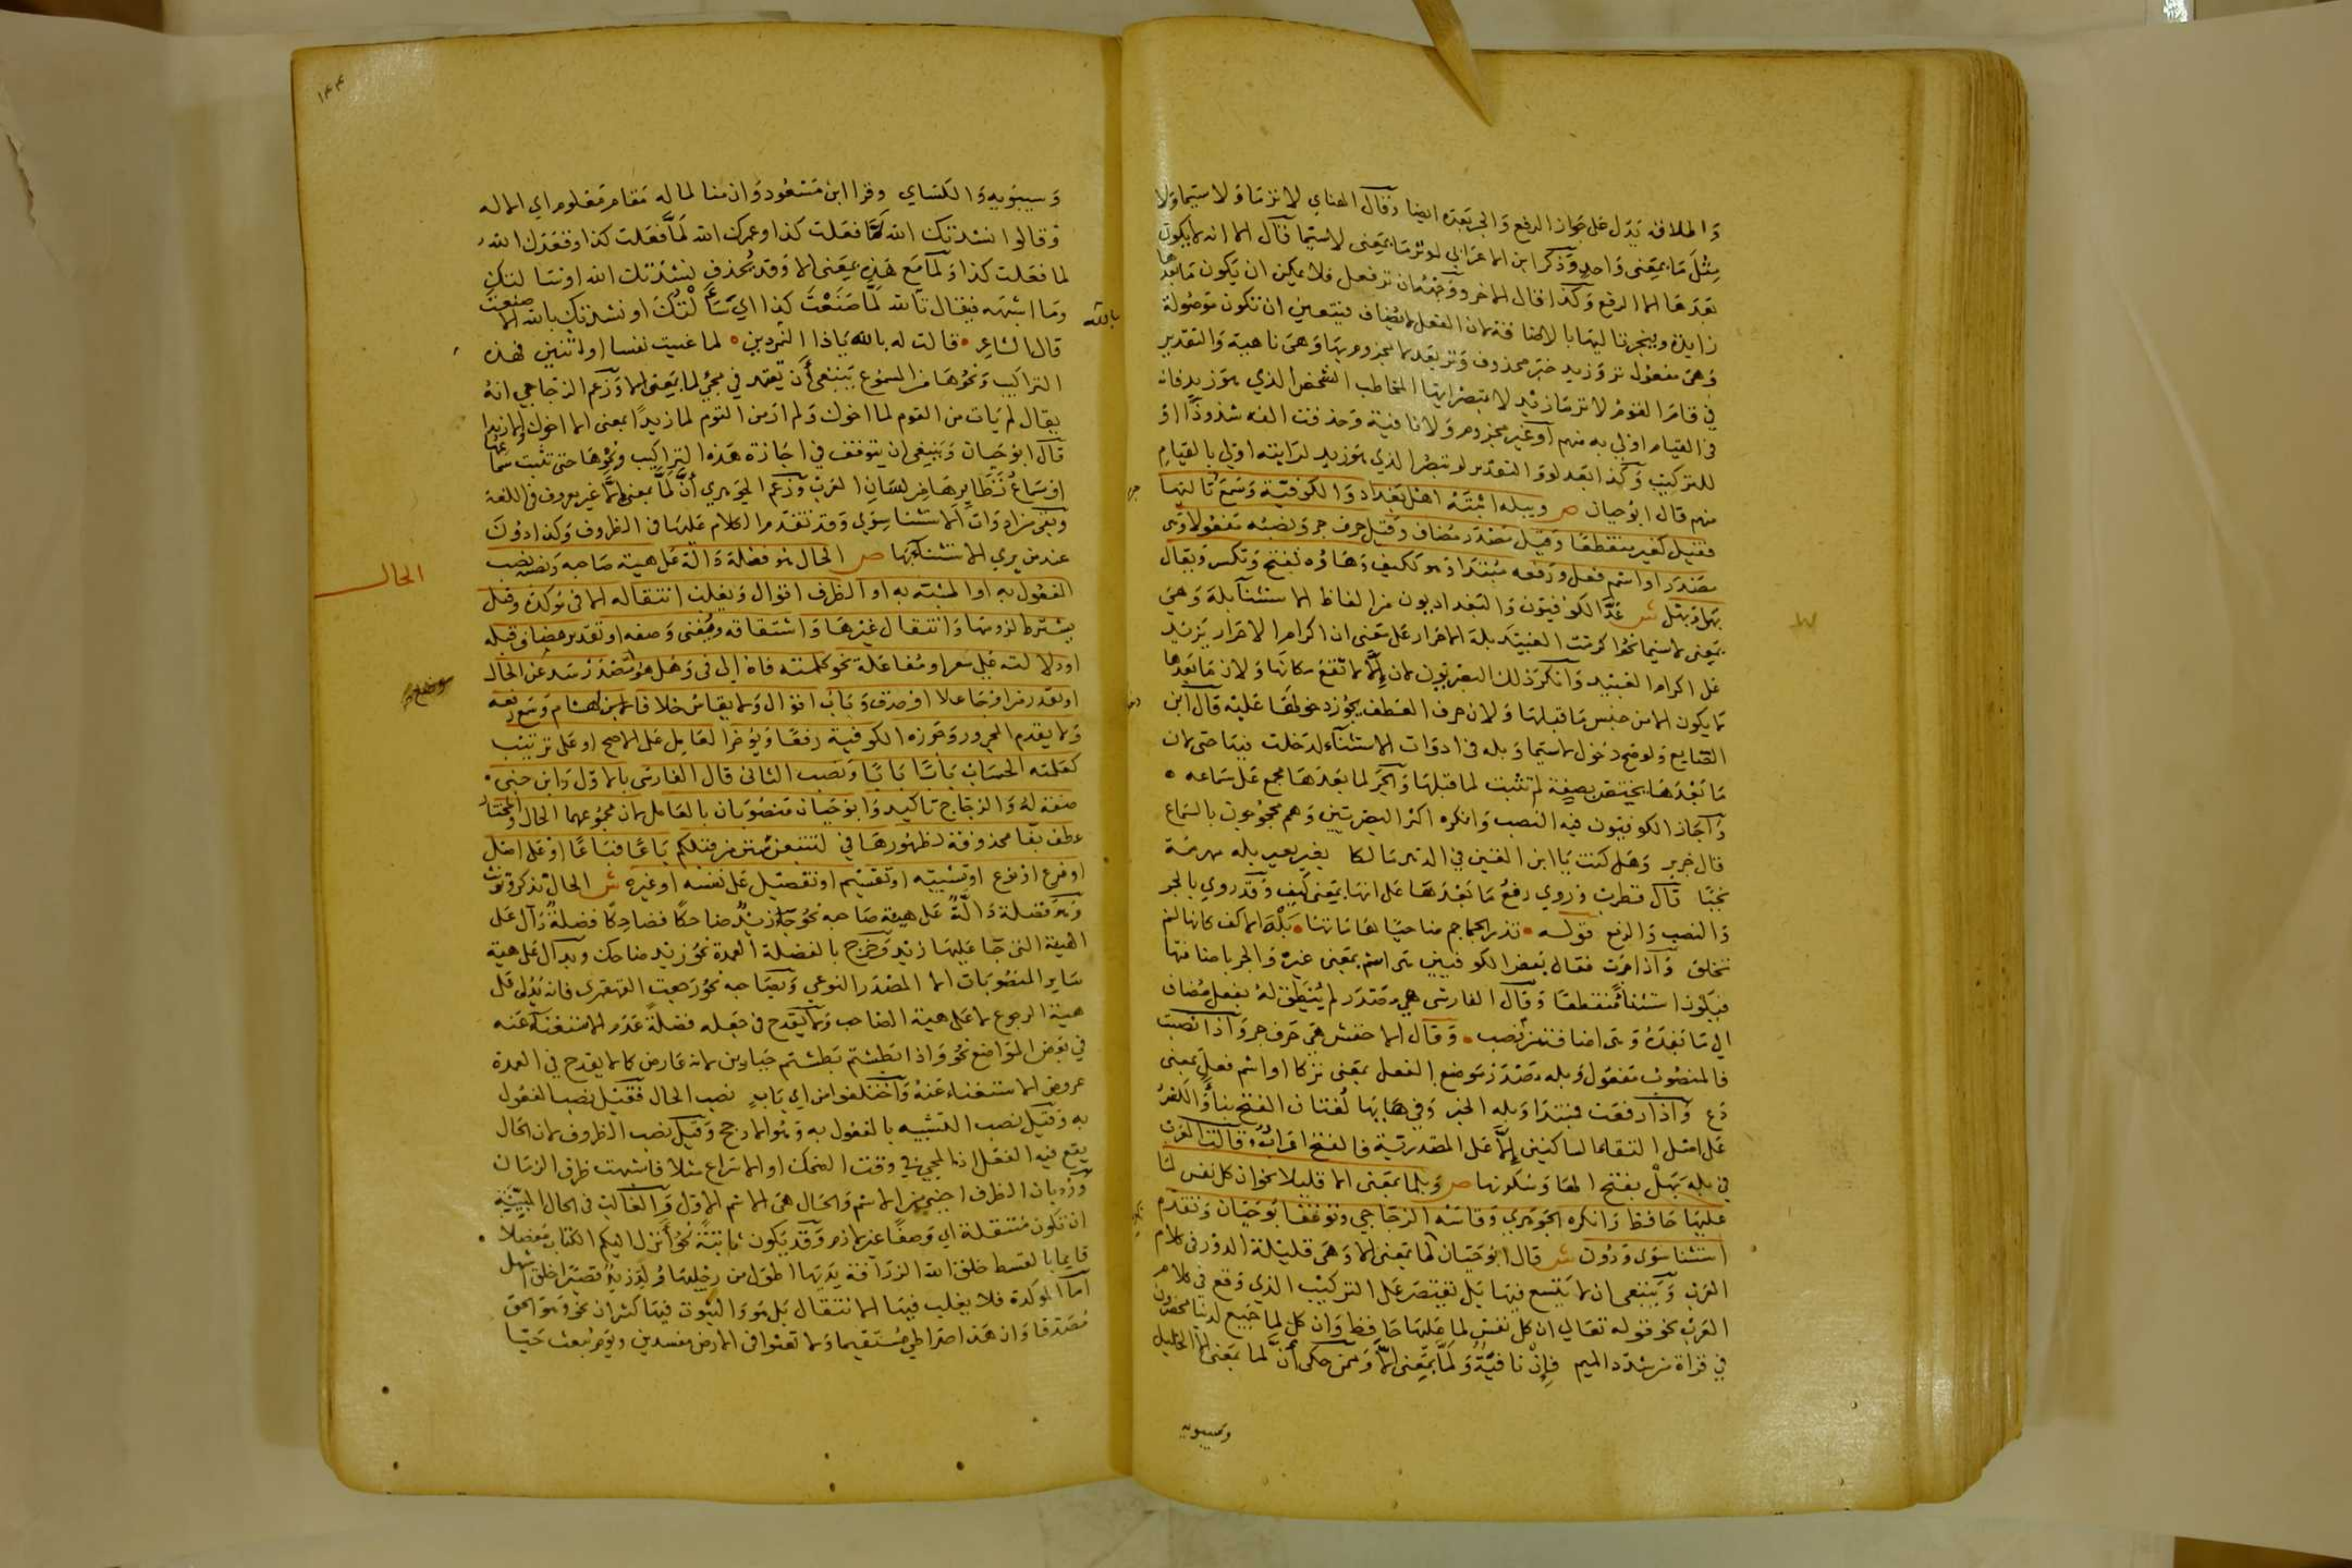 واطلاقه يدل على جواز الرفع والجر بعده ايضا وقال الهنائي لا ترما ولا سيما ولا
مثل ما بمعنى واحد وذكر ابن الاعرابي لو ترما بمعنى لاسيما قال الا انه لا يكون
بعدها الا الرفع وكذا قال الاحمر ووجهه ان تر فعل فلا يمكن ان يكون ما بعدها
زايدة وينجر تاليها بالاضافة لان الفعل لا يضاف فيتعين ان تكون موصولة
وهي مفعول تر وزيد خبر محذوف وتر بعد لا مجزوم بها وهي ناهية والتقدير
في قام القوم لا ترما زيد لا تبصر ايها المخاطب الشخص الذي هو زيد فانه
في القيام اولى به منهم او غير مجزوم ولا نافية وحذفت الفه شذوذا او
للتركيب وكذا بعد لو والتقدير لو تبصر الذي هو زيد لرايته اولى بالقيام
منهم قال ابو حيان ص وبله اثبته اهل بغداد والكوفية وسمع تاليها
فقيل كغير منقطعا وقيل مصدر مضاف وقيل حرف جر ونصبه مفعولا وهى
مصدر او اسم فعل ورفعه مبتدا وهو ككيف وهاؤه تفتح وتكسر ويقال
بهل وبهل ش عد الكوفيون والبغداديون من الفاظ الاستثناء بله وهي
بمعنى لاسيما نحو اكرمت العبيد بله الاحرار على معنى ان اكرام الاحرار يزيد
على اكرام العبيد وانكر ذلك البصريون لان الا لا تقع مكانها ولان ما بعدها
لا يكون الا من جنس ما قبلها ولان حرف العطف يجوز دخوله عليه قال ابن
الضايع ولو صح دخول لاسيما وبله في ادوات الاستثناء لدخلت فيها حتى لان
ما بعدها يختص بصفة لم تثبت لما قبلها والجر لما بعدها مجمع على سماعه
واجاز الكوفيون فيه النصب وانكره اكثر البصريين وهم محجوجون بالسماع
قال جرير وهل كنت يا ابن القين في الدهر مالكا بغير بعير بله مهرية
نجبا قال قطرب وروي رفع ما بعدها على انها بمعنى كيف وقد روي بالجر
والنصب والرفع قوله تذر الجماجم ضاحيا هاماتها بله الاكف كانها لم
تخلق واذا جرت فقال بعض الكوفيين هى اسم بمعنى غير والجر باضافتها
فيكون استثناء منقطعا وقال الفارسي هي مصدر لم ينطق له بفعل مضاف
الى ما بعده وهى اضافة من نصب وقال الاخفش هي حرف جر واذا نصبت
فالمنصوب مفعول وبله مصدر موضع الفعل بمعنى تركا او اسم فعل بمعنى
دع واذا رفعت فمبتدا وبله الخبر وفي هائها لغتان الفتح بناء والكسر
على اصل التقاء الساكنين الا على المصدرية فالفتح اعراب وقالت العرب
في بله بهل بفتح الها وسكونها ص ولما بمعنى الا قليلا نحو ان كل نفس لما
عليها حافظ وانكره الجوهري وقاسه الزجاجي وتوقف ابو حيان وتقدم
استثنا سوى ودون ش قال ابو حيان لما بمعنى الا وهي قليلة الدور في كلام
العرب وينبغي ان لا يتسع فيها بل يقتصر على التركيب الذي وقع في كلام
العرب نحو قوله تعالى ان كل نفس لما عليها حافظ وان كل لما جميع لدينا محضرون
في قراة من شدد الميم فان نافية ولما بمعنى الا وممن حكى ان لما بمعنى الا الخليل
وسيبويه
١٣٤
وسيبويه والكساي وقرا ابن مسعود وان منا لما له مقام معلوم اي الا له
وقالوا نشدتك الله لما فعلت كذا وعمرك الله لما فعلت كذا وقعدك الله
لما فعلت كذا ولما مع هذه بمعنى الا وقد يحذف نشدتك الله او سالتك
وما اشبهه فيقال تالله لما صنعت كذا اي سالتك او نشدتك بالله الا صنعت
بالله
قال الشاعر قالت له بالله ياذا البردين لما غنيت نفسا او اثنين فهذه
التراكيب ونحوها من المسموع ينبغي ان يعتمد في مجي لما بمعنى الا وزعم الزجاجي انه
يقال لم يات من القوم لما اخوك ولم ار من القوم لما زيدا بمعنى الا اخوك والا زيدا
قال ابو حيان وينبغي ان يتوقف في اجازة هذه التراكيب ونحوها حتى تثبت سماعها
او سماع نظايرها من لسان العرب وزعم الجوهري ان لما بمعنى الا غير معروف في اللغة
وبقى من ادوات الاستثنا سوى وقد تقدم الكلام عليها في الظروف وكذا دون
عند من يرى الاستثناء بها ص الحال هو فضلة دالة على هيئة صاحبه ونصبه نصب
الحال
المفعول به او المشبه به او الظرف اقوال ويغلب انتقاله الا في مؤكدة وقيل
يشترط لزومها وانتقال غيرها واشتقاقه ويغني وصفه او تقدير مضاف قبله
او دلالته على سعر او مفاعلة نحو كلمته فاه الى في وهل هو مصدر سد عن الحال
او بقدر من او جاعلا او صدق وباب اقوال ولا يقاس خلافا لابن هشام وسمع رفعه
ولا يقدم المجرور وجوزه الكوفية رفعا ويؤخر العامل على الاصح او على ترتيب
كعلمته الحساب بابا بابا ونصب الثانى قال الفارسى بالاول وابن جنى
صفة له والزجاج تاكيد وابو حيان منصوبان بالعامل لان مجموعهما الحال والمختار
عطف بفا محذوفة لظهورها في لتتبعن سنن من قبلكم باعا فباعا او على اصل
او فرع او نوع او تشبيه او تقسيم او تفضيل على نفسه او غيره ش الحال تذكر وتؤنث
وهو فضلة دالة على هيئة صاحبه نحو جاء زيد ضاحكا فضاحكا فضلة دال على
الهيئة التي جا عليها زيد وخرج بالفضلة العمدة نحو زيد ضاحك وبدال على هيئة
ساير المنصوبات الا المصدر النوعي وبصاحبه نحو رجعت القهقرى فانه يدل على
هيئة الرجوع لا على هيئة الصاحب ولا يقدح في جعله فضلة عدم الاستغناء عنه
في بعض المواضع نحو واذا بطشتم بطشتم جبارين لانه عارض كما لا يقدح في العمدة
عروض الاستغناء عنه واختلفوا من اي باب نصب الحال فقيل نصب المفعول
به وقيل نصب التشبيه بالمفعول به وهو الارجح وقيل نصب الظروف لان الحال
يقع فيه الفعل اذ المجي في وقت الضحك او الاسراع مثلا فاشبهت ظرف الزمان
ورد بان الظرف اجنبي من الاسم والحال هى الاسم الاول والغالب في الحال المبينة
ان تكون منتقلة اي وصفا غير لازم وقد يكون ثابتة نحو انزل اليكم الكتاب مفصلا
قايما بالقسط خلق الله الزرافة يديها اطول من رجليها ولد زيد قصيرا خلق اشهل
اما المؤكدة فلا يغلب فيها الانتقال بل هو والثبوت فيها كثيران نحو وهو الحق
مصدقا وان هذا صراطي مستقيما ولا تعثوا في الارض مفسدين ويوم يبعث حيا